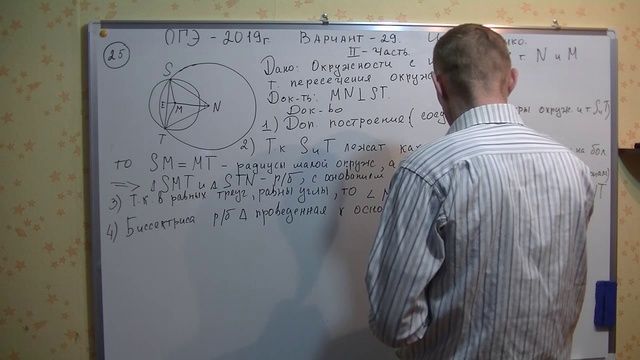 ОГЭ - 2019г. Вариант - 29.
II - Часть
25
Дано: Окружности с
N и M
т. пересечения окруж
Док-ть: MN⊥ST.
Док-во
1) Доп. построения (
окруж. и т S и T)
2) Тк S и T лежат
на бол.
то SM = MT - радиусы малой окруж, а
=> ΔSMT и ΔSTN - р/б, с основанием
3) Т.к. в равных треуг, равны углы, то ∠
4) Биссектриса р/б Δ проведенная к осно
S
E
M
N
T